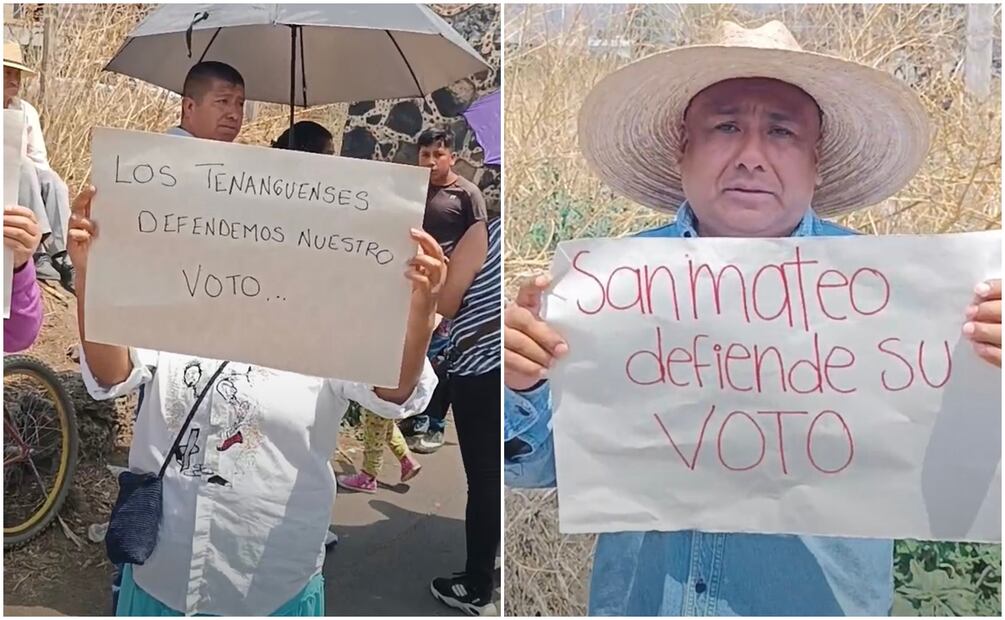 LOS TENANGUENSES
DEFENDEMOS NUESTRO
VOTO...
San mateo
defiende SU
VOTO